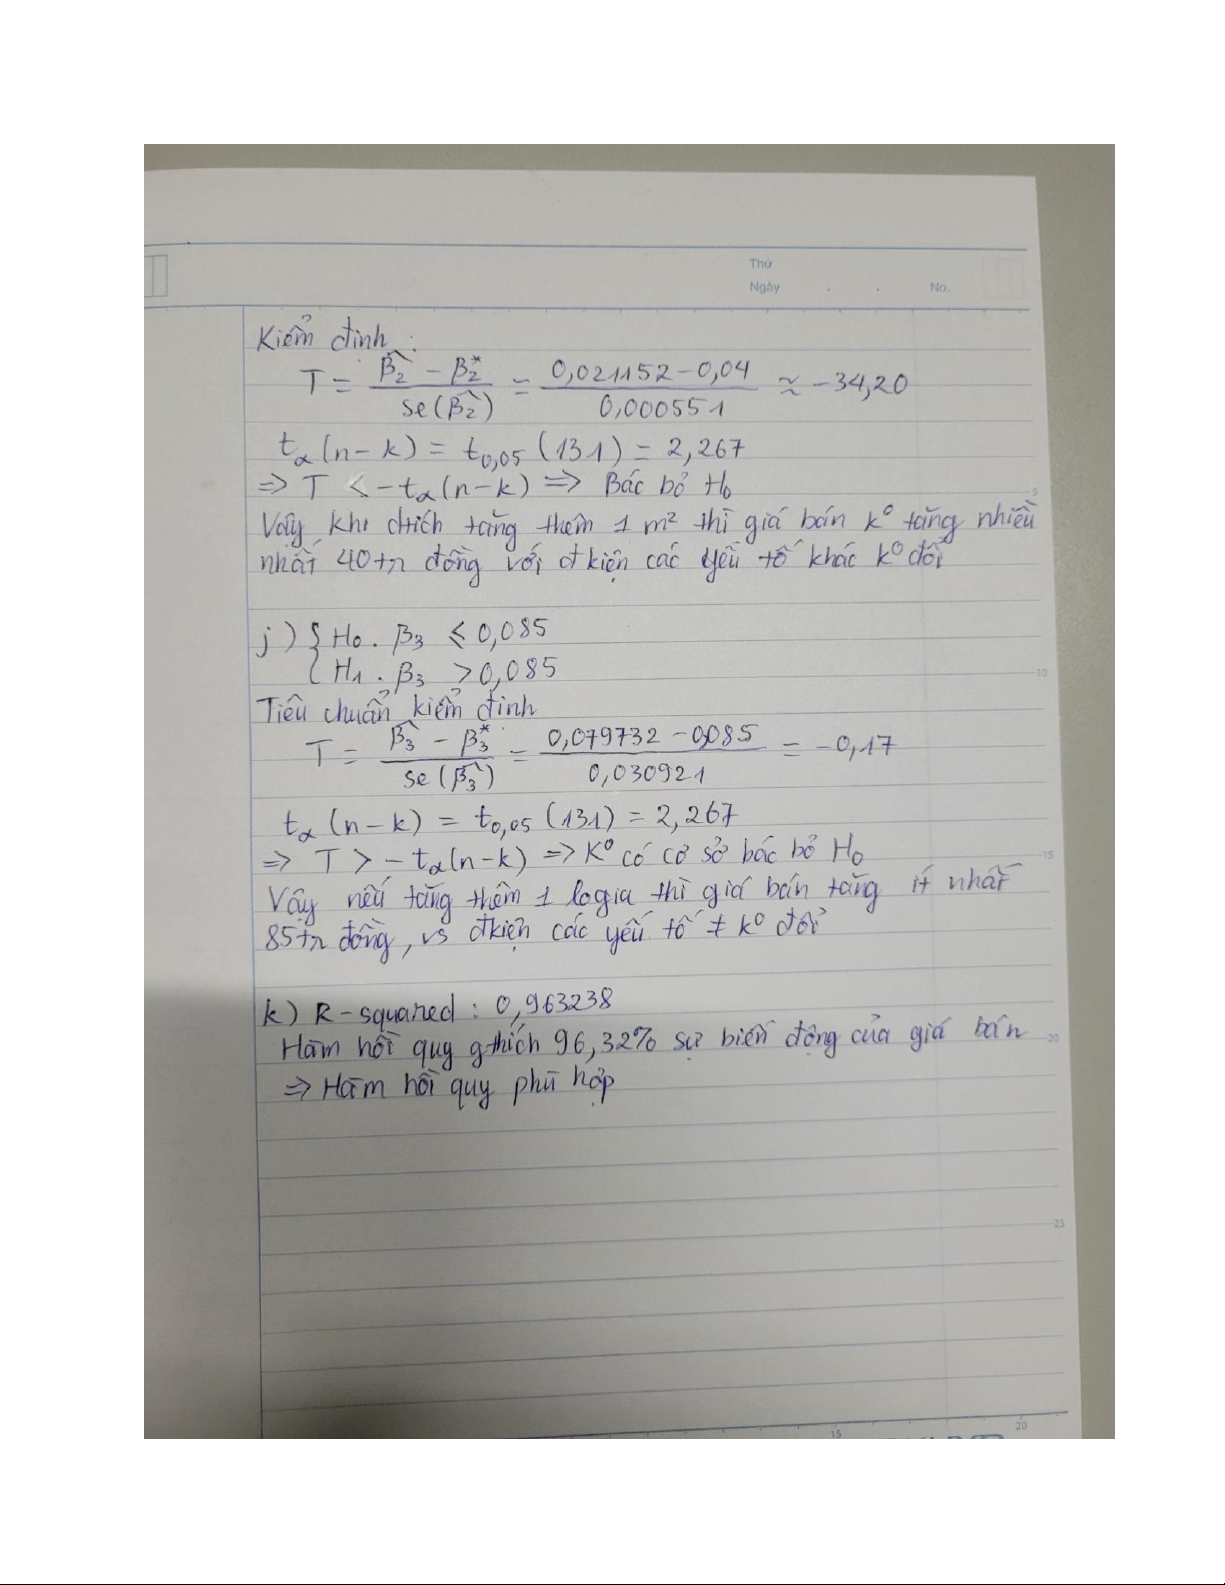 Thứ
Ngày . . No.
Kiểm định :
T = (β̂₂ - β₂*) / se(β̂₂) = (0,021152 - 0,04) / 0,000551 ≈ -34,20
tα(n-k) = t0,05 (131) = 2,267
=> T < -tα(n-k) => Bác bỏ H₀
Vậy khi dtích tăng thêm 1 m² thì giá bán k⁰ tăng nhiều
nhất 40tr đồng với đkiện các yếu tố khác k⁰ đổi
j) { H₀ . β₃ ≤ 0,085
H₁ . β₃ > 0,085
Tiêu chuẩn kiểm định
T = (β̂₃ - β₃*) / se(β̂₃) = (0,079732 - 0,085) / 0,030921 = -0,17
tα (n-k) = t0,05 (131) = 2,267
=> T > -tα(n-k) => K⁰ có cơ sở bác bỏ H₀
Vậy nếu tăng thêm 1 logia thì giá bán tăng ít nhất
85tr đồng, vs đkiện các yếu tố ≠ k⁰ đổi
k) R-squared : 0,963238
Hàm hồi quy gthích 96,32% sự biến động của giá bán
=> Hàm hồi quy phù hợp
5
10
15
20
25
15
20